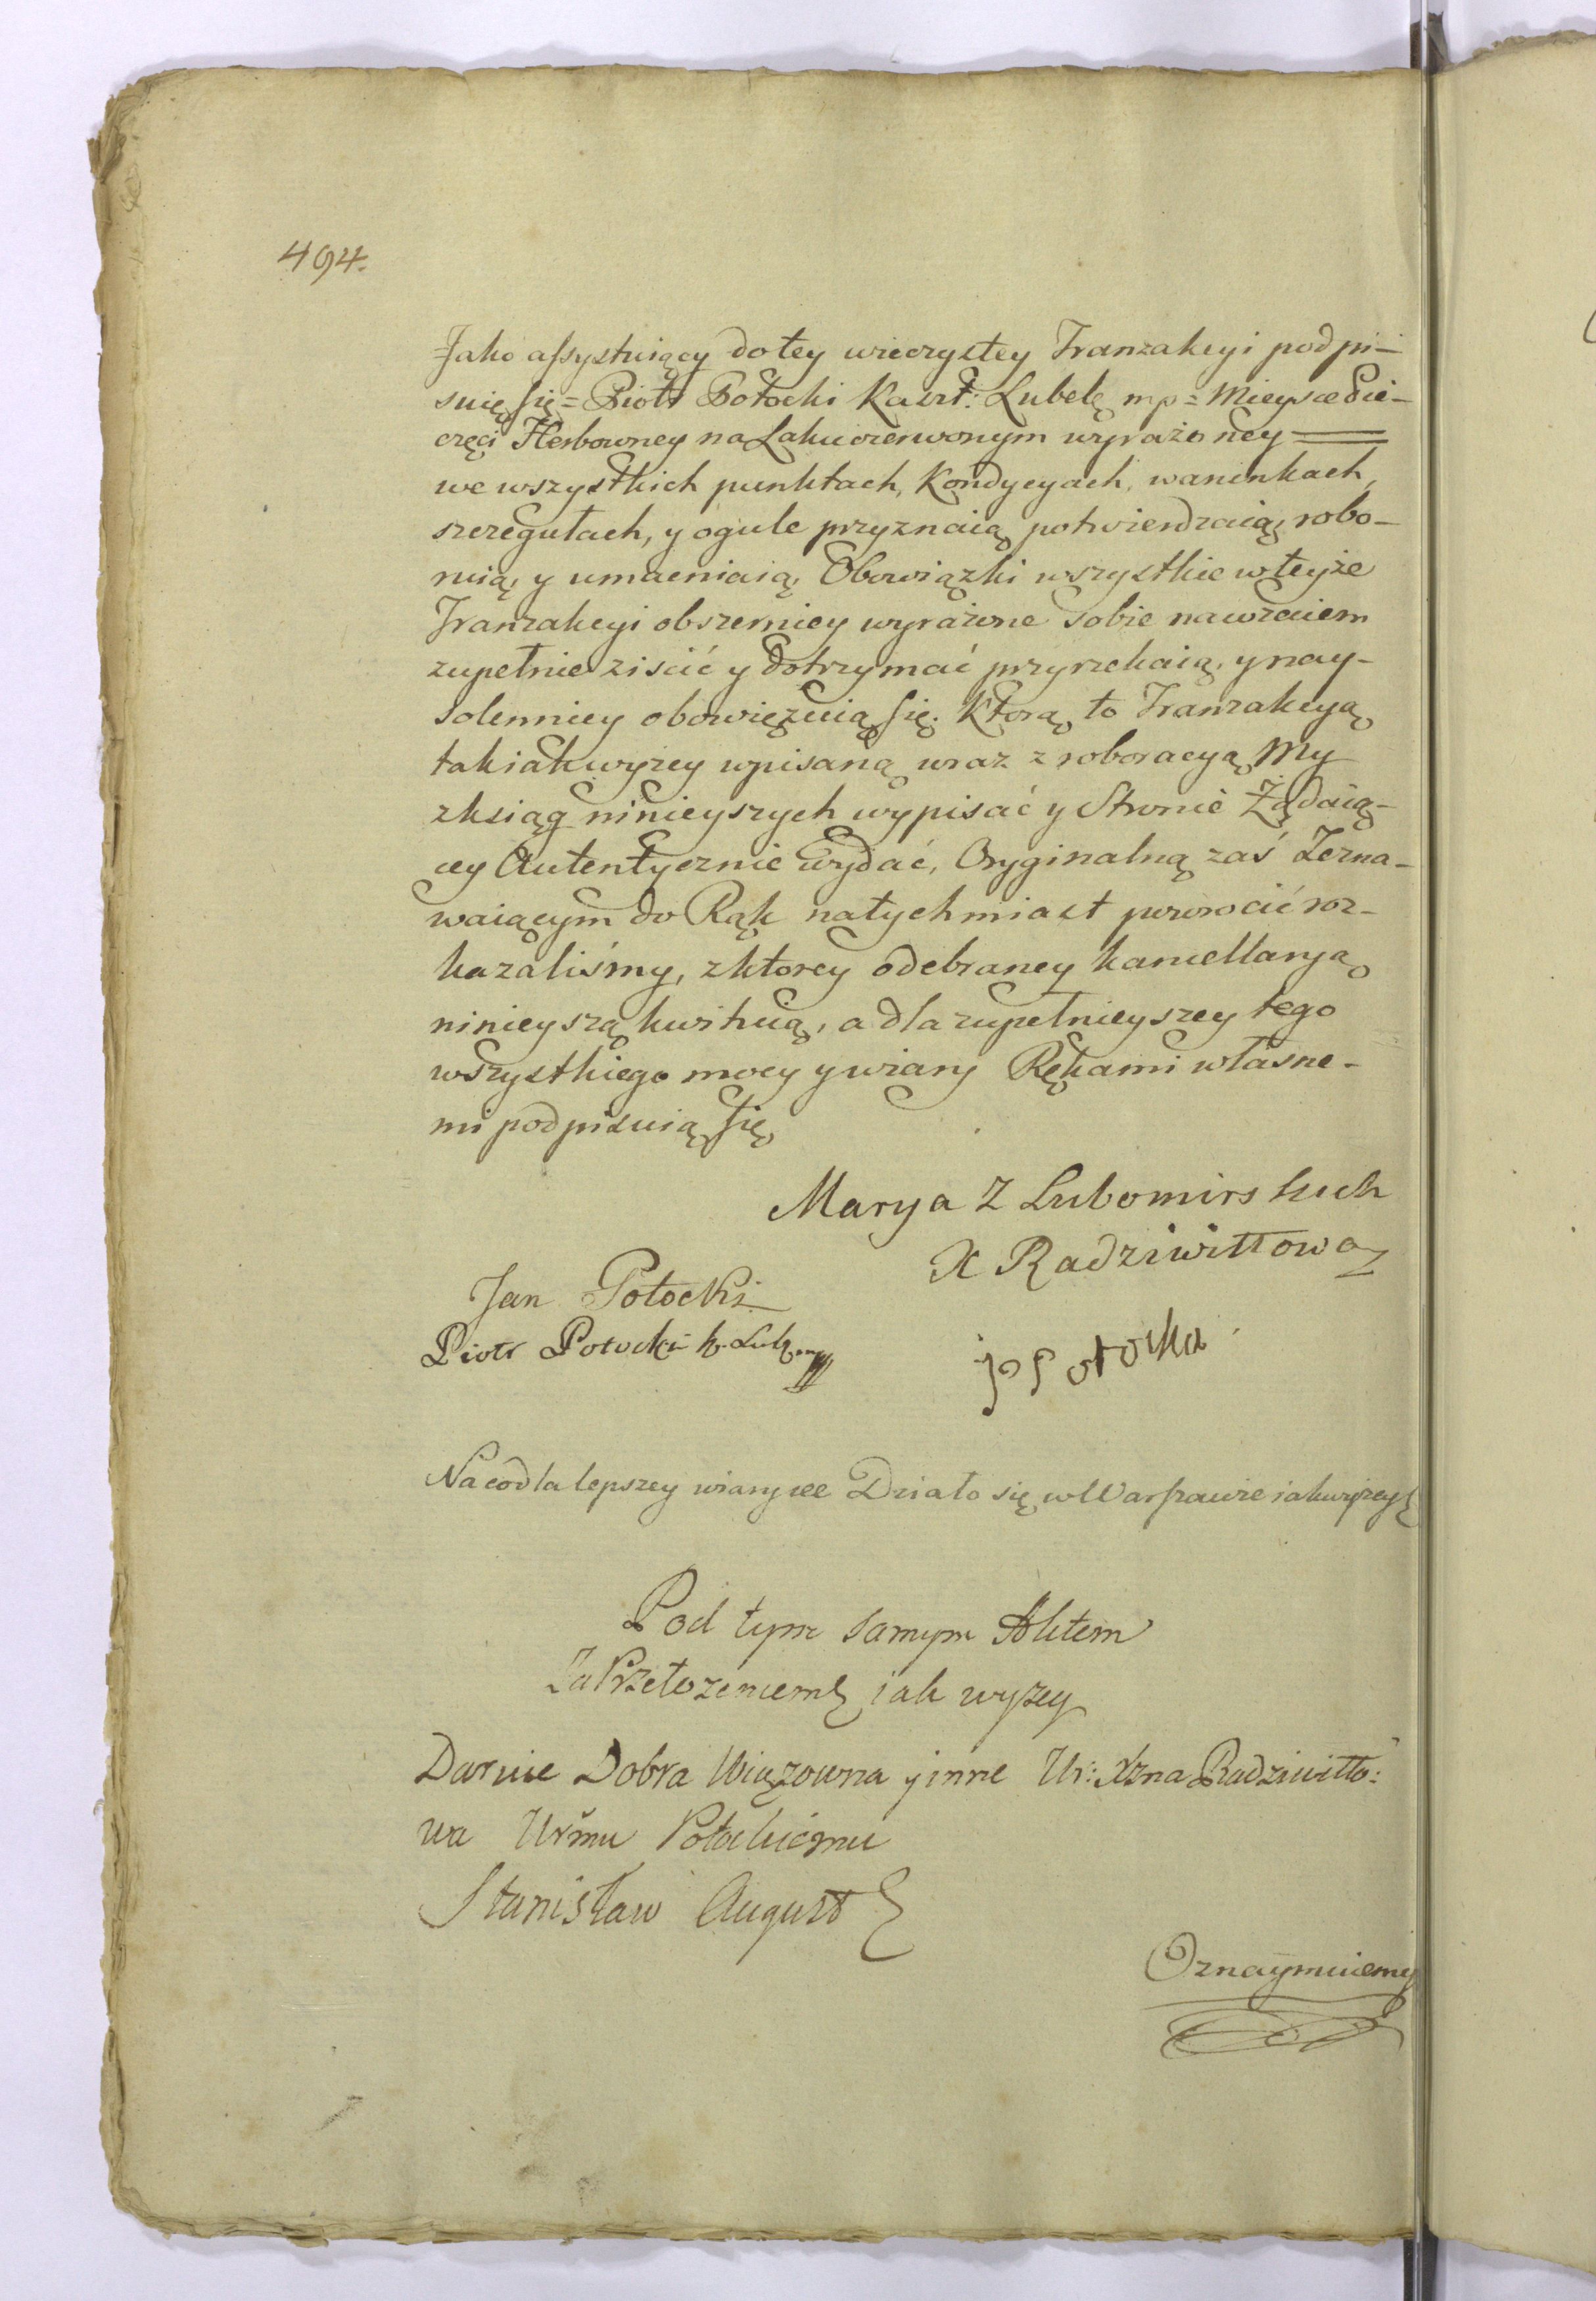 494.
Jako assystuiący do tey wieczystey Tranzakcyi podpi-
suię się = Piotr Potocki Kaszt: Lubelę mp = Mieysce Pie-
częci Herbowney na Laku czerwonym wyrażoney =
we wszystkich punktach, Kondycyach, warunkach,
szczegułach, y ogule przyznaią, potwierdzaią, robo-
ruią, y umacniaią, Obowiązki wszystkie w teyże
Tranzakcyi obszerniey wyrażone sobie nawzaiem
zupełnie ziscić y dotrzymać przyrzekaią, y nay-
solenniey obowięzuią się. Którą to Tranzakcyą
tak iak wyżey wpisaną wraz z roboracyą My
z ksiąg ninieyszych wypisać y Stronie Żądaią-
cey Autentycznie wydać, Oryginalną zaś Zezna-
waiącym do Rąk natychmiast powrocić roz-
kazaliśmy, z ktorey odebraney kancellaryą
ninieyszą kwituią, a dla zupełnieyszey tego
wszystkiego mocy y wiary Rękami własne-
mi podpisuią się
Marya Z Lubomirskich
X Radziwiłłowa
Jan Potocki
Piotr Potocki k. Lub. mp
j Potocka
Na co dla lepszey wiary ece Działo się w Warszawie iak wyżey
Pod tym samym Aktem
Za Przełożeniem iak wyżey
Daruie Dobra Wiązowna y inne Ur: Xzna Radziwiłło:
wa Urmu Potockiemu
Stanisław August
Oznaymuiemy